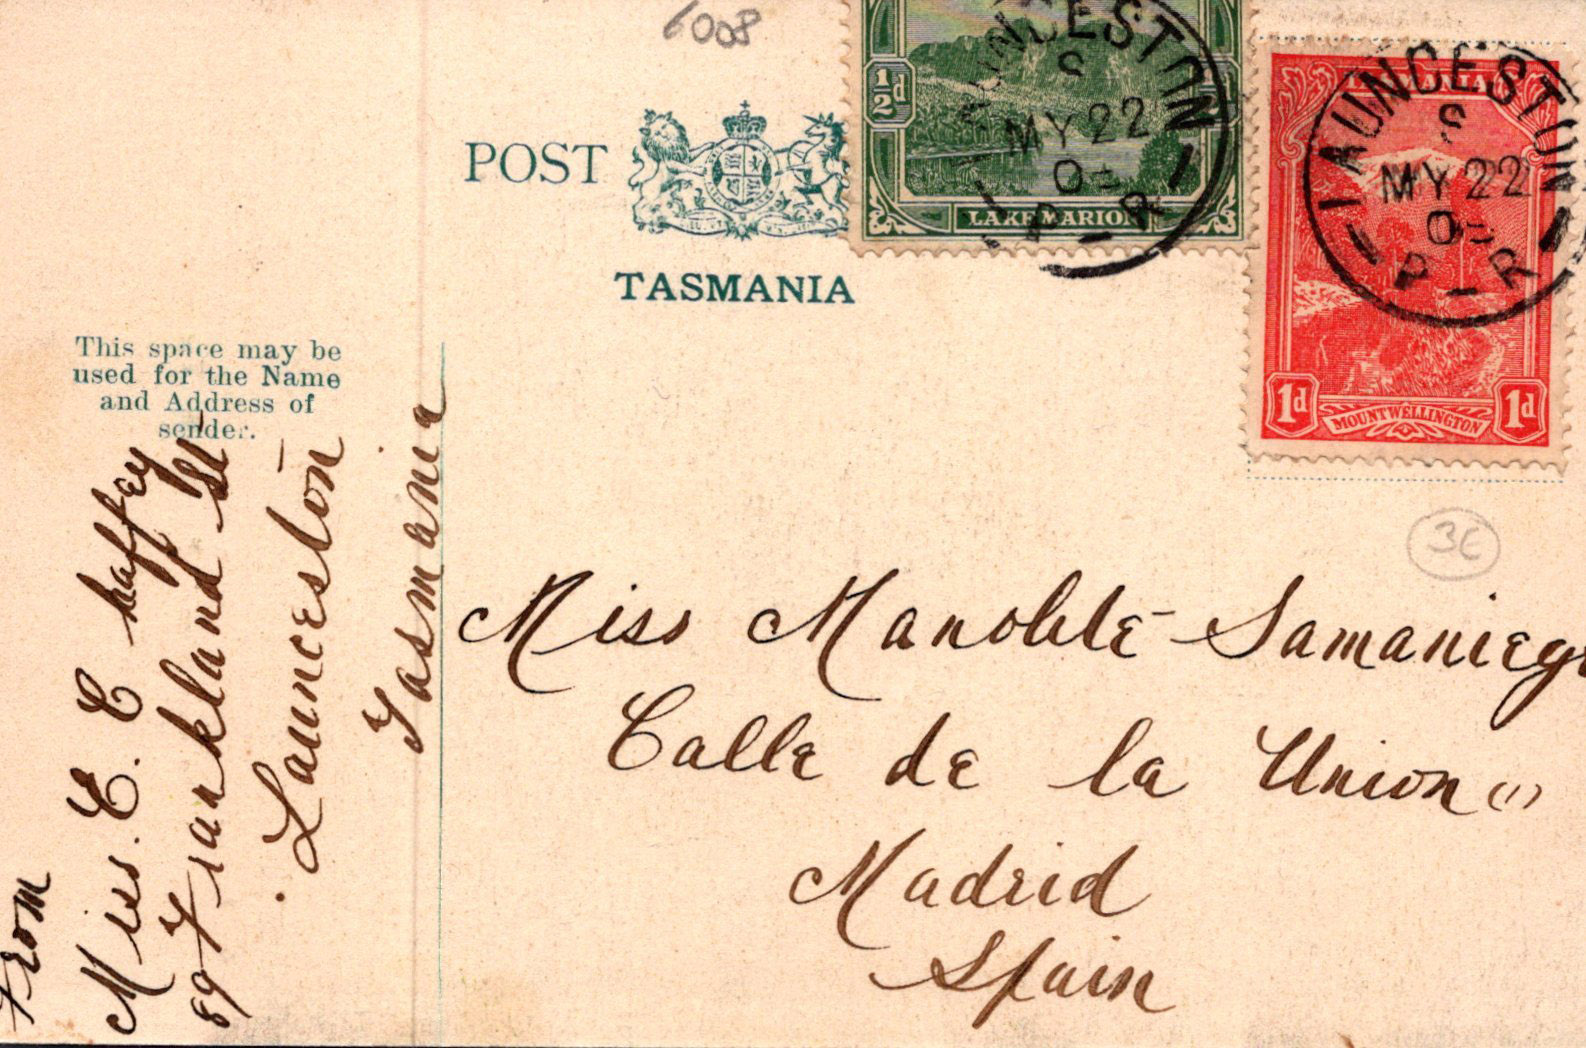 6008
POST
TASMANIA
½d
LAKE MARION
LAUNCESTON
S
MY 22
05
P-R
TASMANIA
1d 1d
MOUNT WELLINGTON
LAUNCESTON
S
MY 22
05
P-R
This space may be
used for the Name
and Address of
sender.
From
Miss. E. C haffey
89 Frankland St
Launceston
Tasmania
3E
Miss Manolite-Samaniego
Calle de la Union (1)
Madrid
Spain